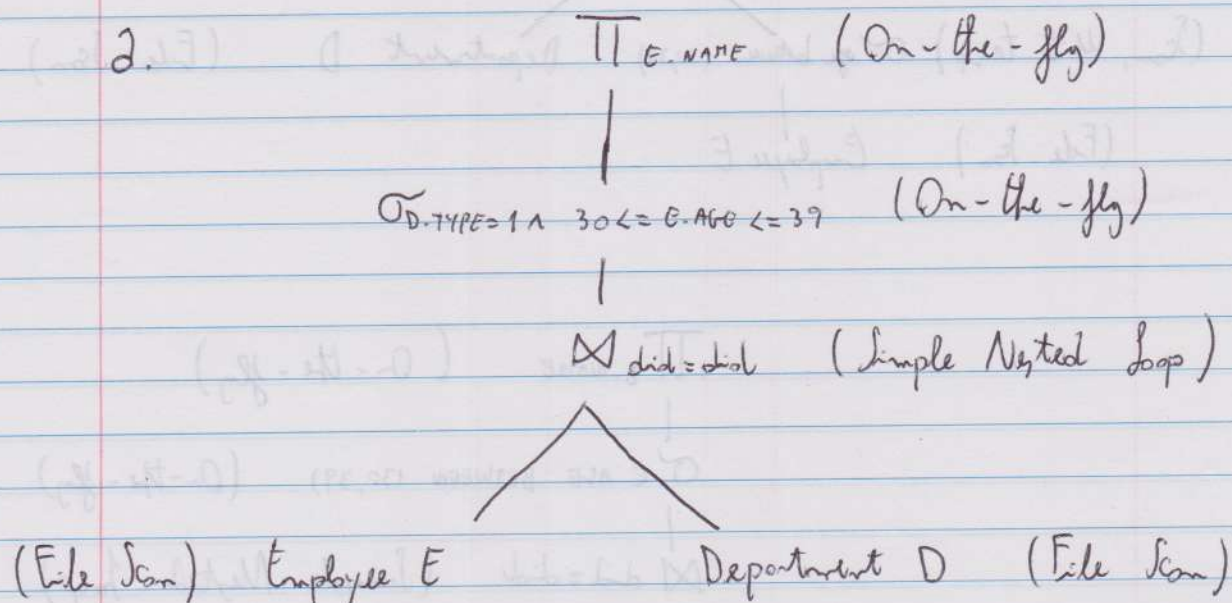 2. Π E.NAME (On-the-fly)
σ D.TYPE=1 ∧ 30<= E.AGE <=39 (On-the-fly)
⋈ did=did (Simple Nested Loop)
(File Scan) Employee E Department D (File Scan)